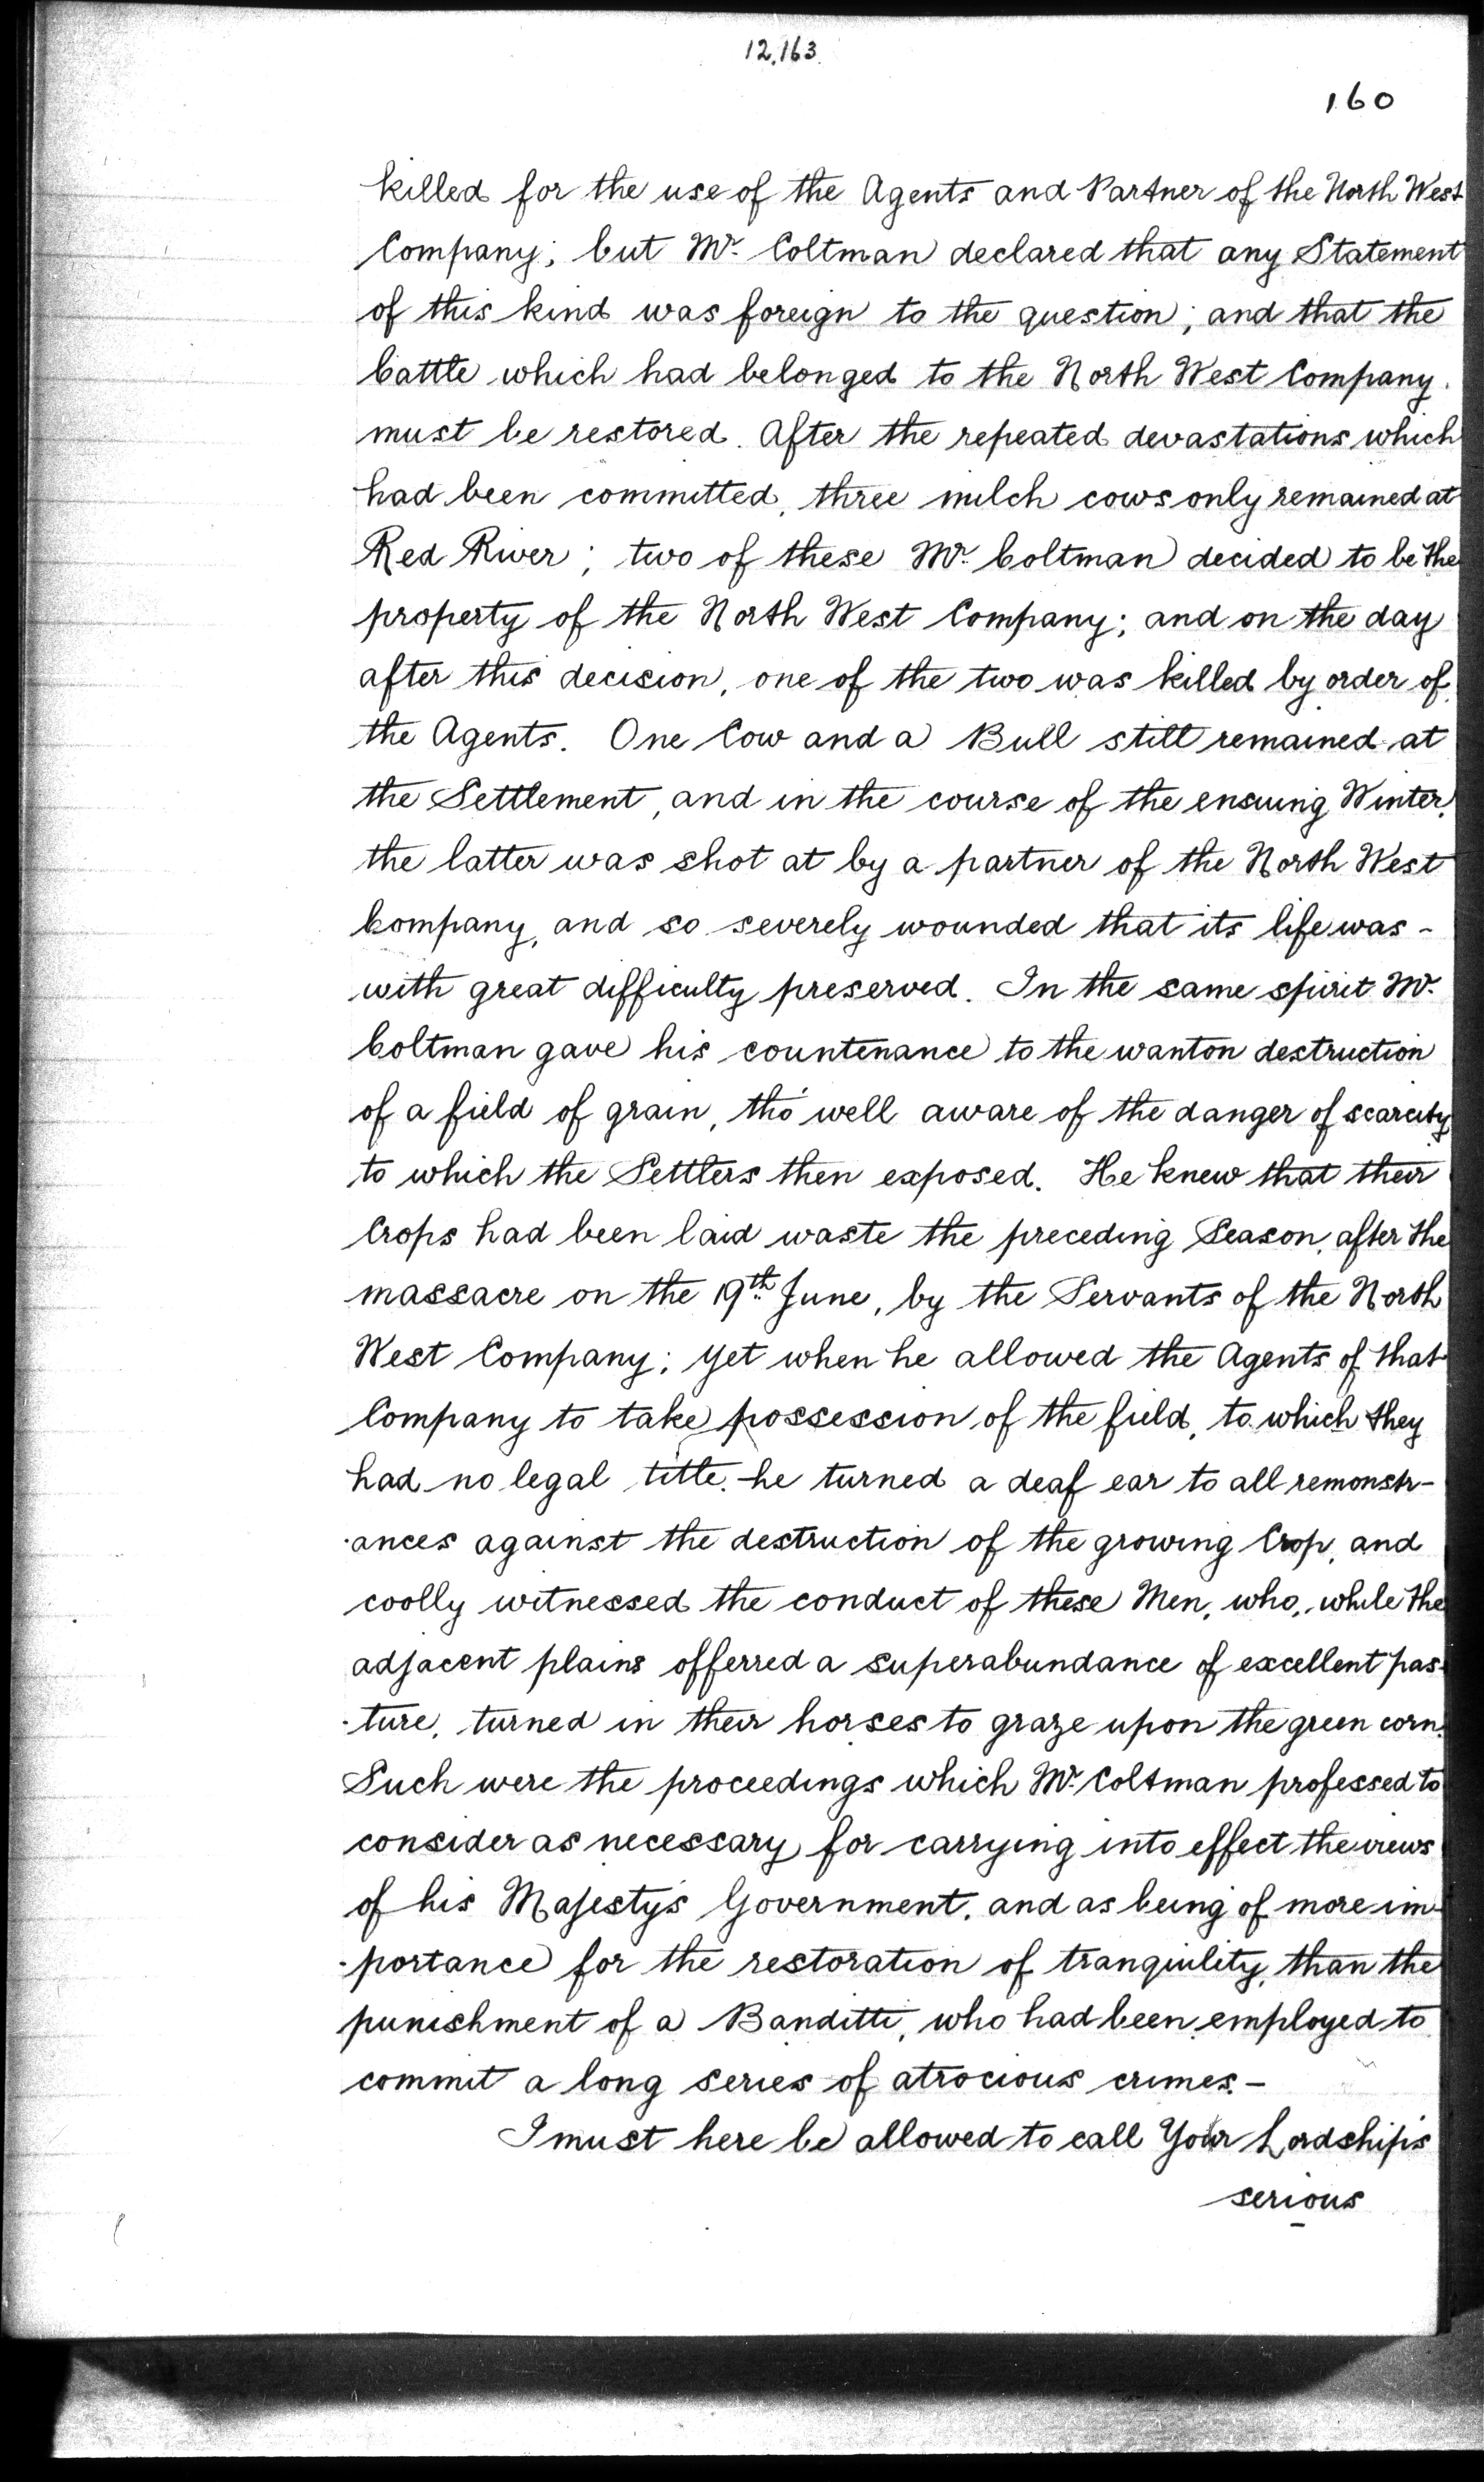 12,163.
160
killed for the use of the Agents and Partner of the North West
Company; but Mr. Coltman declared that any Statement
of this kind was foreign to the question; and that the
Cattle which had belonged to the North West Company.
must be restored. After the repeated devastations which
had been committed, three milch cows only remained at
Red River; two of these Mr. Coltman decided to be the
property of the North West Company; and on the day
after this decision, one of the two was killed by order of
the Agents. One Cow and a Bull still remained at
the Settlement, and in the course of the ensuing Winter,
the latter was shot at by a partner of the North West
Company, and so severely wounded that its life was -
with great difficulty preserved. In the same spirit Mr.
Coltman gave his countenance to the wanton destruction
of a field of grain, tho' well aware of the danger of scarcity
to which the Settlers then exposed. He knew that their
Crops had been laid waste the preceding Season, after the
massacre on the 19th June, by the Servants of the North
West Company; yet when he allowed the Agents of that
Company to take possession of the field, to which they
had no legal title. he turned a deaf ear to all remonstr-
-ances against the destruction of the growing Crop, and
coolly witnessed the conduct of these Men, who, while the
adjacent plains offerred a superabundance of excellent pas-
-ture, turned in their horses to graze upon the green corn.
Such were the proceedings which Mr. Coltman professed to
consider as necessary for carrying into effect the views
of his Majesty's Government, and as being of more im-
-portance for the restoration of tranquility, than the
punishment of a Banditti, who had been employed to
commit a long series of atrocious crimes. -
I must here be allowed to call Your Lordship's
serious